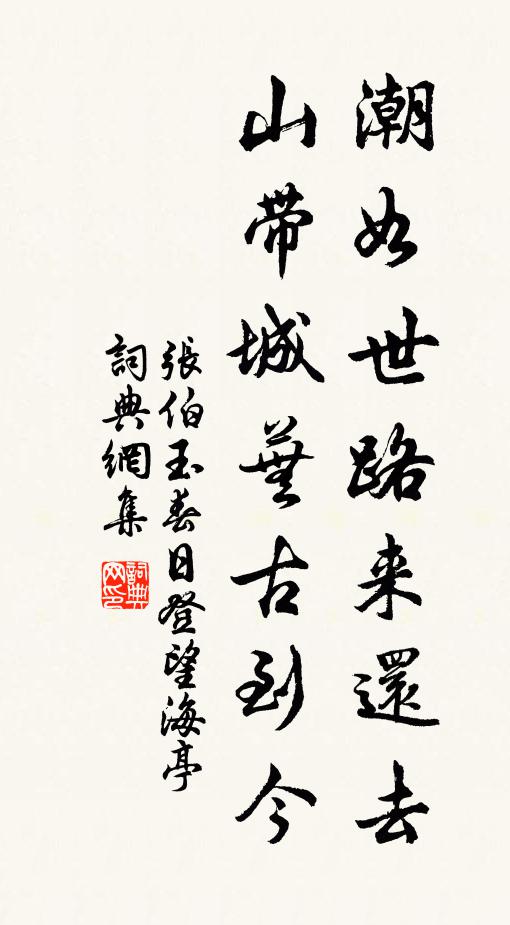 潮如世路来還去
山帶城蕪古到今
張伯玉春日登望海亭
詞典網集
詞典网印